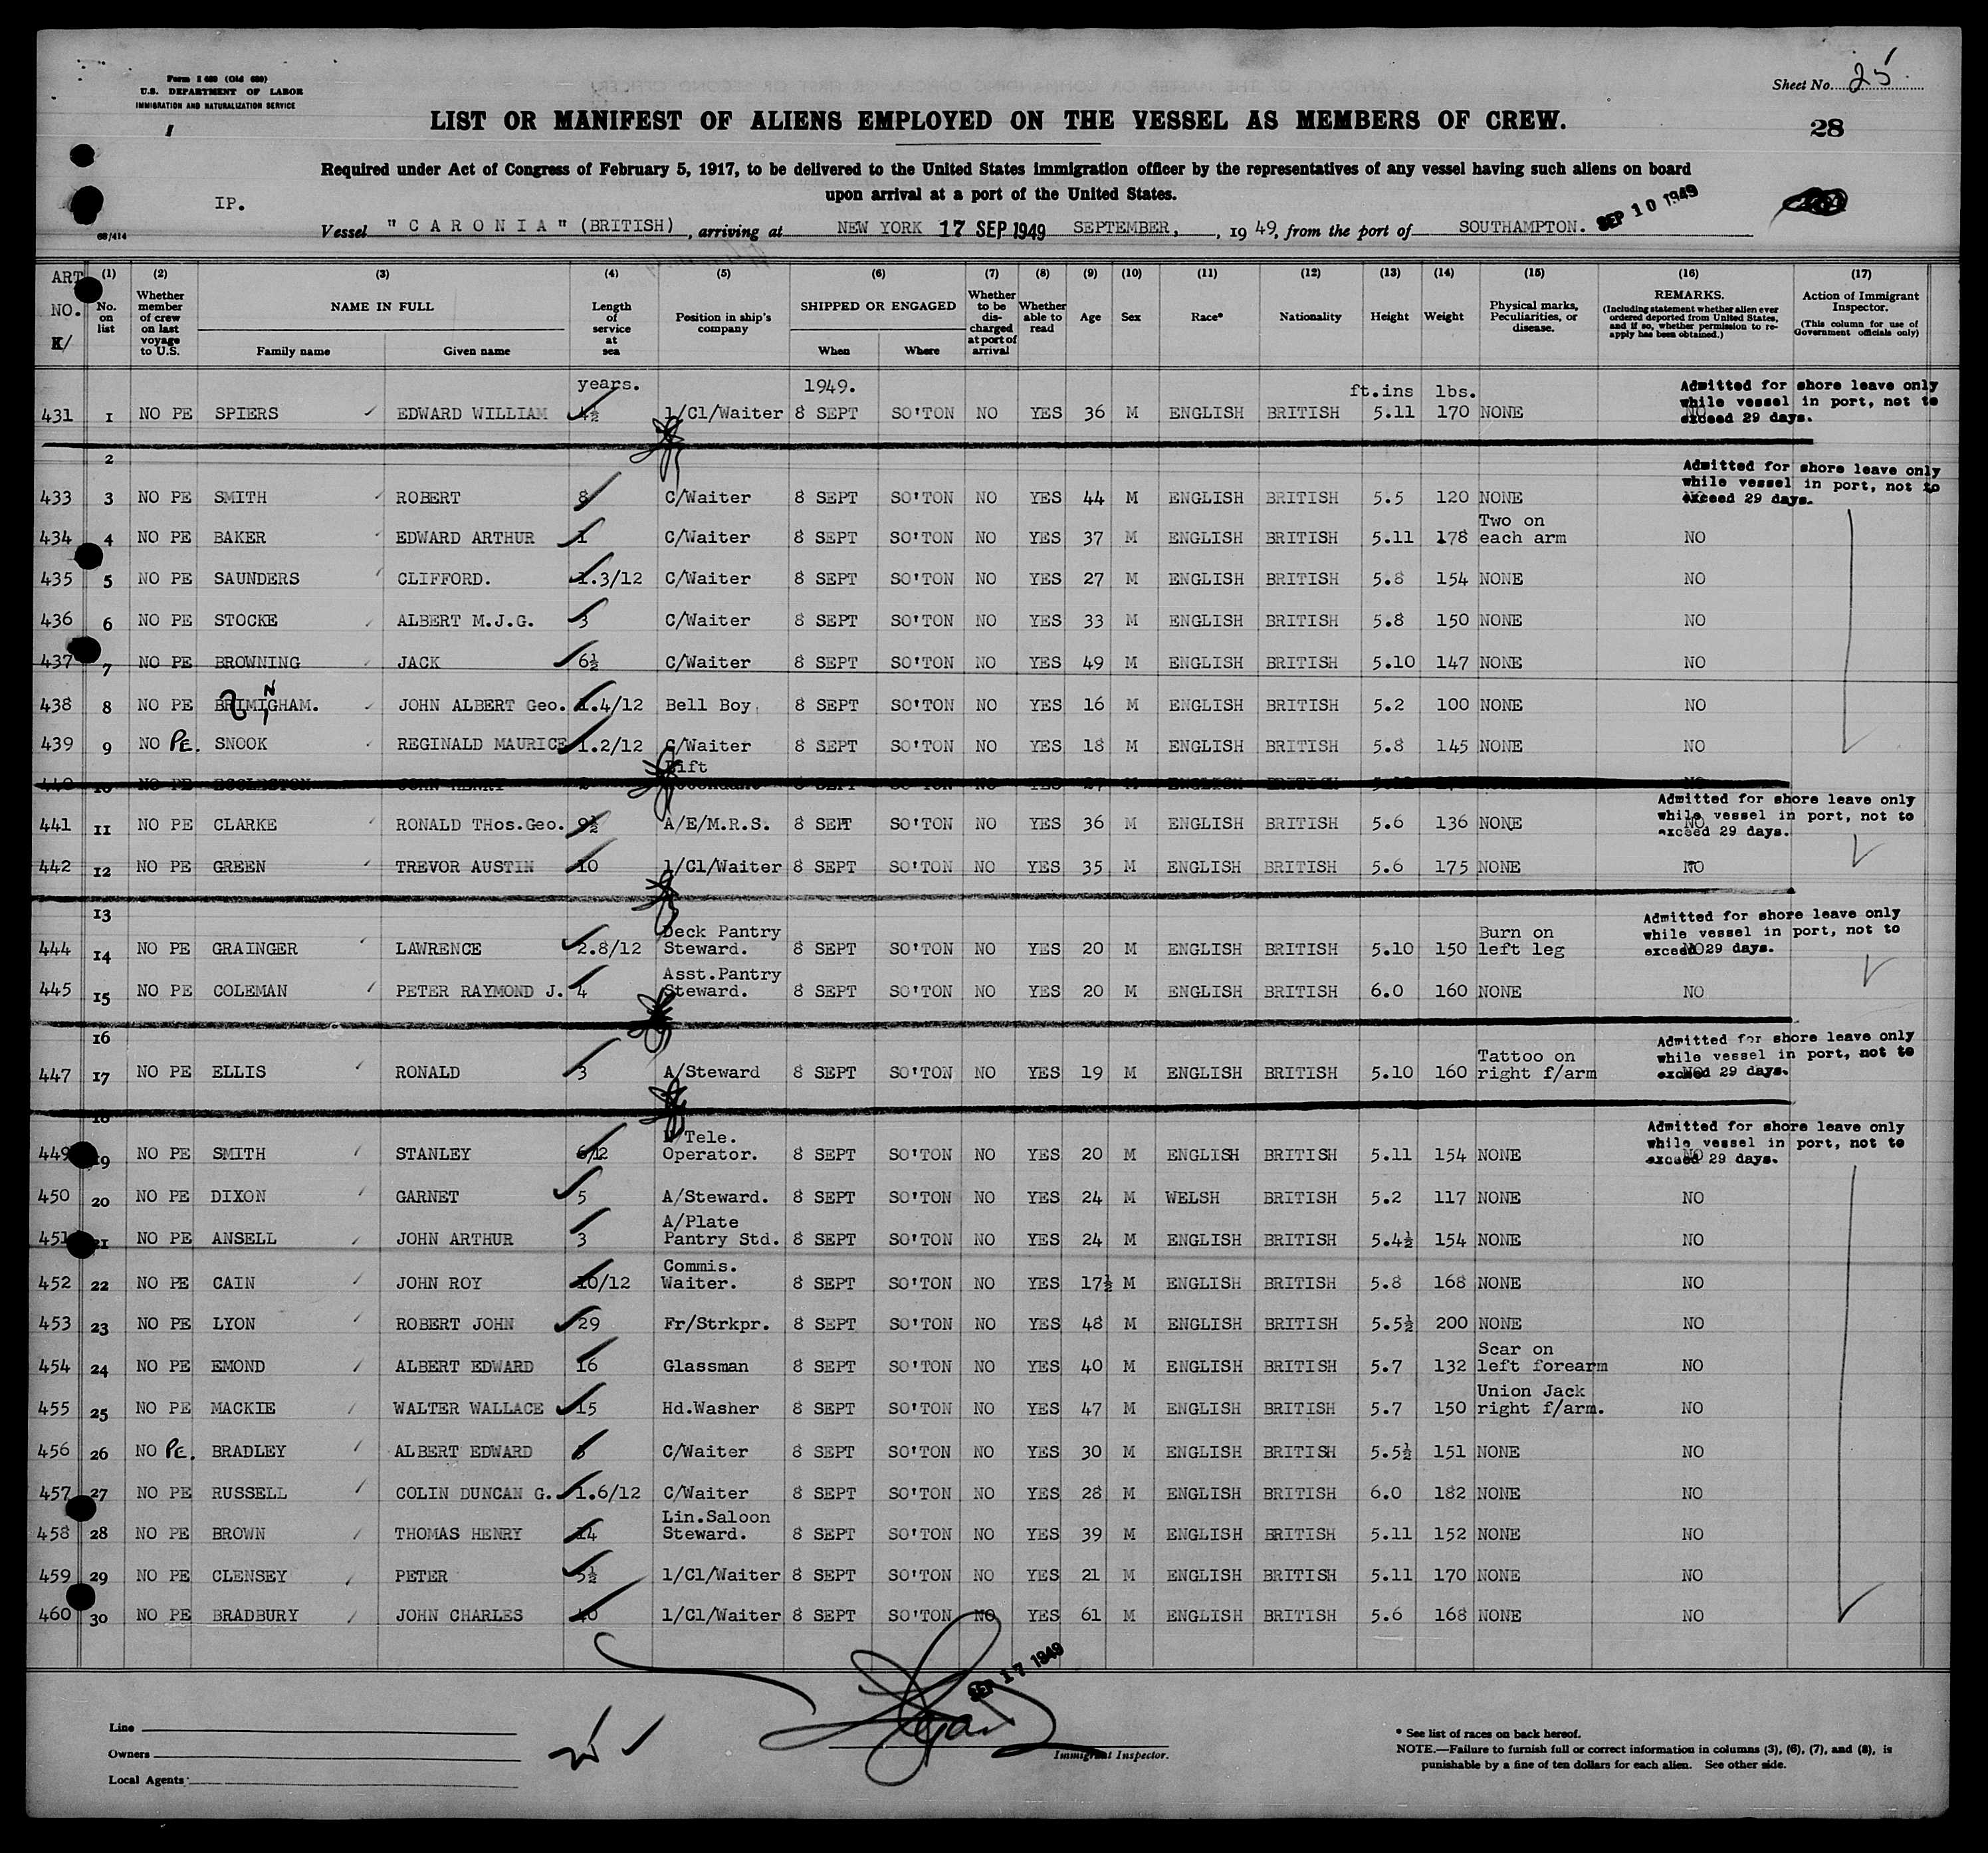 Form I 689 (Old 689)
U.S. DEPARTMENT OF LABOR
IMMIGRATION AND NATURALIZATION SERVICE
Sheet No. 25
LIST OR MANIFEST OF ALIENS EMPLOYED ON THE VESSEL AS MEMBERS OF CREW.
28
Required under Act of Congress of February 5, 1917, to be delivered to the United States immigration officer by the representatives of any vessel having such aliens on board
upon arrival at a port of the United States.
IP.
68/414
Vessel "CARONIA" (BRITISH), arriving at NEW YORK 17 SEP 1949 SEPTEMBER, , 19 49, from the port of SOUTHAMPTON. SEP 10 1949
ART NO. K/
(1) No. on list
(2) Whether member of crew on last voyage to U.S.
(3) NAME IN FULL Family name Given name
(4) Length of service at sea
(5) Position in ship's company
(6) SHIPPED OR ENGAGED When Where
(7) Whether to be discharged at port of arrival
(8) Whether able to read
(9) Age
(10) Sex
(11) Race*
(12) Nationality
(13) Height
(14) Weight
(15) Physical marks, Peculiarities, or disease.
(16) REMARKS. (Including statement whether alien ever ordered deported from United States, and if so, whether permission to re-apply has been obtained.)
(17) Action of Immigrant Inspector. (This column for use of Government officials only)
years. 1949. ft.ins lbs.
431 1 NO PE SPIERS EDWARD WILLIAM 4½ 1/Cl/Waiter 8 SEPT SO'TON NO YES 36 M ENGLISH BRITISH 5.11 170 NONE NO Admitted for shore leave only while vessel in port, not to exceed 29 days.
2
433 3 NO PE SMITH ROBERT 8 C/Waiter 8 SEPT SO'TON NO YES 44 M ENGLISH BRITISH 5.5 120 NONE Admitted for shore leave only while vessel in port, not to exceed 29 days.
434 4 NO PE BAKER EDWARD ARTHUR 1 C/Waiter 8 SEPT SO'TON NO YES 37 M ENGLISH BRITISH 5.11 178 Two on each arm NO
435 5 NO PE SAUNDERS CLIFFORD. 1.3/12 C/Waiter 8 SEPT SO'TON NO YES 27 M ENGLISH BRITISH 5.8 154 NONE NO
436 6 NO PE STOCKE ALBERT M.J.G. 3 C/Waiter 8 SEPT SO'TON NO YES 33 M ENGLISH BRITISH 5.8 150 NONE NO
437 7 NO PE BROWNING JACK 6½ C/Waiter 8 SEPT SO'TON NO YES 49 M ENGLISH BRITISH 5.10 147 NONE NO
438 8 NO PE BRIMIGHAM. N JOHN ALBERT Geo. 1.4/12 Bell Boy 8 SEPT SO'TON NO YES 16 M ENGLISH BRITISH 5.2 100 NONE NO
439 9 NO PE. SNOOK REGINALD MAURICE 1.2/12 C/Waiter 8 SEPT SO'TON NO YES 18 M ENGLISH BRITISH 5.8 145 NONE NO
440 10 NO PE ECCLESTON JOHN HENRY 2 Lift Attendant 8 SEPT SO'TON NO YES 27 M ENGLISH BRITISH NO
441 11 NO PE CLARKE RONALD THos.Geo. 9½ A/E/M.R.S. 8 SEPT SO'TON NO YES 36 M ENGLISH BRITISH 5.6 136 NONE NO Admitted for shore leave only while vessel in port, not to exceed 29 days.
442 12 NO PE GREEN TREVOR AUSTIN 10 1/Cl/Waiter 8 SEPT SO'TON NO YES 35 M ENGLISH BRITISH 5.6 175 NONE NO
13
444 14 NO PE GRAINGER LAWRENCE 2.8/12 Deck Pantry Steward. 8 SEPT SO'TON NO YES 20 M ENGLISH BRITISH 5.10 150 Burn on left leg NO Admitted for shore leave only while vessel in port, not to exceed 29 days.
445 15 NO PE COLEMAN PETER RAYMOND J. 4 Asst.Pantry Steward. 8 SEPT SO'TON NO YES 20 M ENGLISH BRITISH 6.0 160 NONE NO
16
447 17 NO PE ELLIS RONALD 3 A/Steward 8 SEPT SO'TON NO YES 19 M ENGLISH BRITISH 5.10 160 Tattoo on right f/arm NO Admitted for shore leave only while vessel in port, not to exceed 29 days.
18
449 19 NO PE SMITH STANLEY 6/12 Tele. Operator. 8 SEPT SO'TON NO YES 20 M ENGLISH BRITISH 5.11 154 NONE NO Admitted for shore leave only while vessel in port, not to exceed 29 days.
450 20 NO PE DIXON GARNET 5 A/Steward. 8 SEPT SO'TON NO YES 24 M WELSH BRITISH 5.2 117 NONE NO
451 21 NO PE ANSELL JOHN ARTHUR 3 A/Plate Pantry Std. 8 SEPT SO'TON NO YES 24 M ENGLISH BRITISH 5.4½ 154 NONE NO
452 22 NO PE CAIN JOHN ROY 10/12 Commis. Waiter. 8 SEPT SO'TON NO YES 17½ M ENGLISH BRITISH 5.8 168 NONE NO
453 23 NO PE LYON ROBERT JOHN 29 Fr/Strkpr. 8 SEPT SO'TON NO YES 48 M ENGLISH BRITISH 5.5½ 200 NONE NO
454 24 NO PE EMOND ALBERT EDWARD 16 Glassman 8 SEPT SO'TON NO YES 40 M ENGLISH BRITISH 5.7 132 Scar on left forearm NO
455 25 NO PE MACKIE WALTER WALLACE 15 Hd.Washer 8 SEPT SO'TON NO YES 47 M ENGLISH BRITISH 5.7 150 Union Jack right f/arm. NO
456 26 NO PE. BRADLEY ALBERT EDWARD C/Waiter 8 SEPT SO'TON NO YES 30 M ENGLISH BRITISH 5.5½ 151 NONE NO
457 27 NO PE RUSSELL COLIN DUNCAN G. 1.6/12 C/Waiter 8 SEPT SO'TON NO YES 28 M ENGLISH BRITISH 6.0 182 NONE NO
458 28 NO PE BROWN THOMAS HENRY 14 Lin.Saloon Steward. 8 SEPT SO'TON NO YES 39 M ENGLISH BRITISH 5.11 152 NONE NO
459 29 NO PE CLENSEY PETER 5½ 1/Cl/Waiter 8 SEPT SO'TON NO YES 21 M ENGLISH BRITISH 5.11 170 NONE NO
460 30 NO PE BRADBURY JOHN CHARLES 40 1/Cl/Waiter 8 SEPT SO'TON NO YES 61 M ENGLISH BRITISH 5.6 168 NONE NO
SEP 17 1949
Line
Owners
Local Agents
Immigrant Inspector.
* See list of races on back hereof.
NOTE.—Failure to furnish full or correct information in columns (3), (6), (7), and (8), is
punishable by a fine of ten dollars for each alien. See other side.